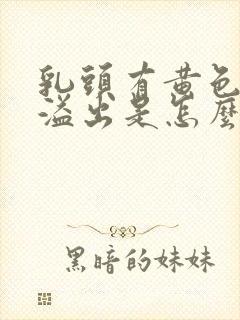 乳頭有黃色
溢出是怎麼
黑暗的妹妹